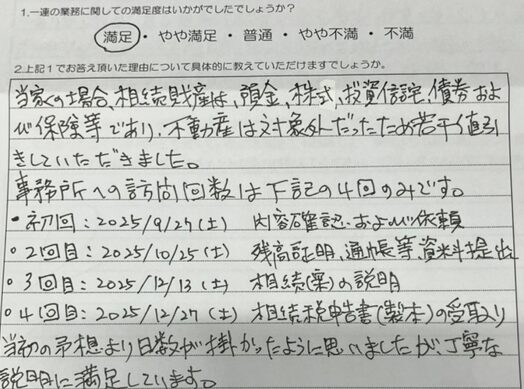 1.一連の業務に関しての満足度はいかがでしたでしょうか？
満足・やや満足・普通・やや不満・不満
2.上記1でお答え頂いた理由について具体的に教えていただけますでしょうか。
当家の場合、相続財産は、預金、株式、投資信託、債券およ
び保険等であり、不動産は対象外だったため若干値引
きしていただきました。
事務所への訪問回数は下記の4回のみです。
・初回：2025/9/27(土) 内容確認および依頼
・2回目：2025/10/25(土) 残高証明、通帳等、資料提出
・3回目：2025/12/13(土) 相続(案)の説明
・4回目：2025/12/27(土) 相続税申告書(製本)の受取り
当初の予想より日数が掛かったように思いましたが、丁寧な
説明に満足しています。